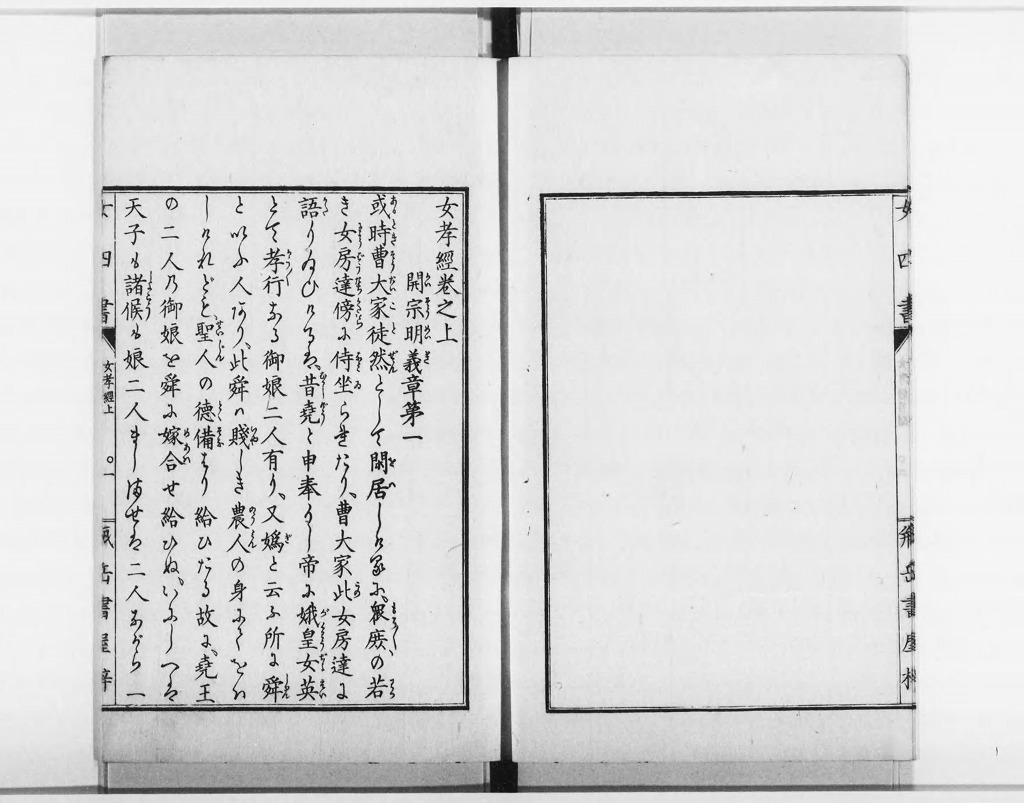 女孝經卷之上
開宗明義章第一
或時曹大家徒然として閑居しける に、衆庶の若
き女房達傍に侍坐らせたり、曹大家此女房達に
語り給ひけるは、昔堯と申奉りし帝に娥皇女英
とて孝行なる御娘二人有り、又嬀と云ふ所に舜
と いふ人あり、此舜ハ賤しき農人の身にて をハ
しけれども、聖人の德備はり給ひたる故に、堯王
の二人乃御娘を舜に嫁合せ給ひぬ、いにしへは
天子も諸侯も娘二人ましませは二人ながら一
女四書
女孝經上
〇一
女四書
書屋